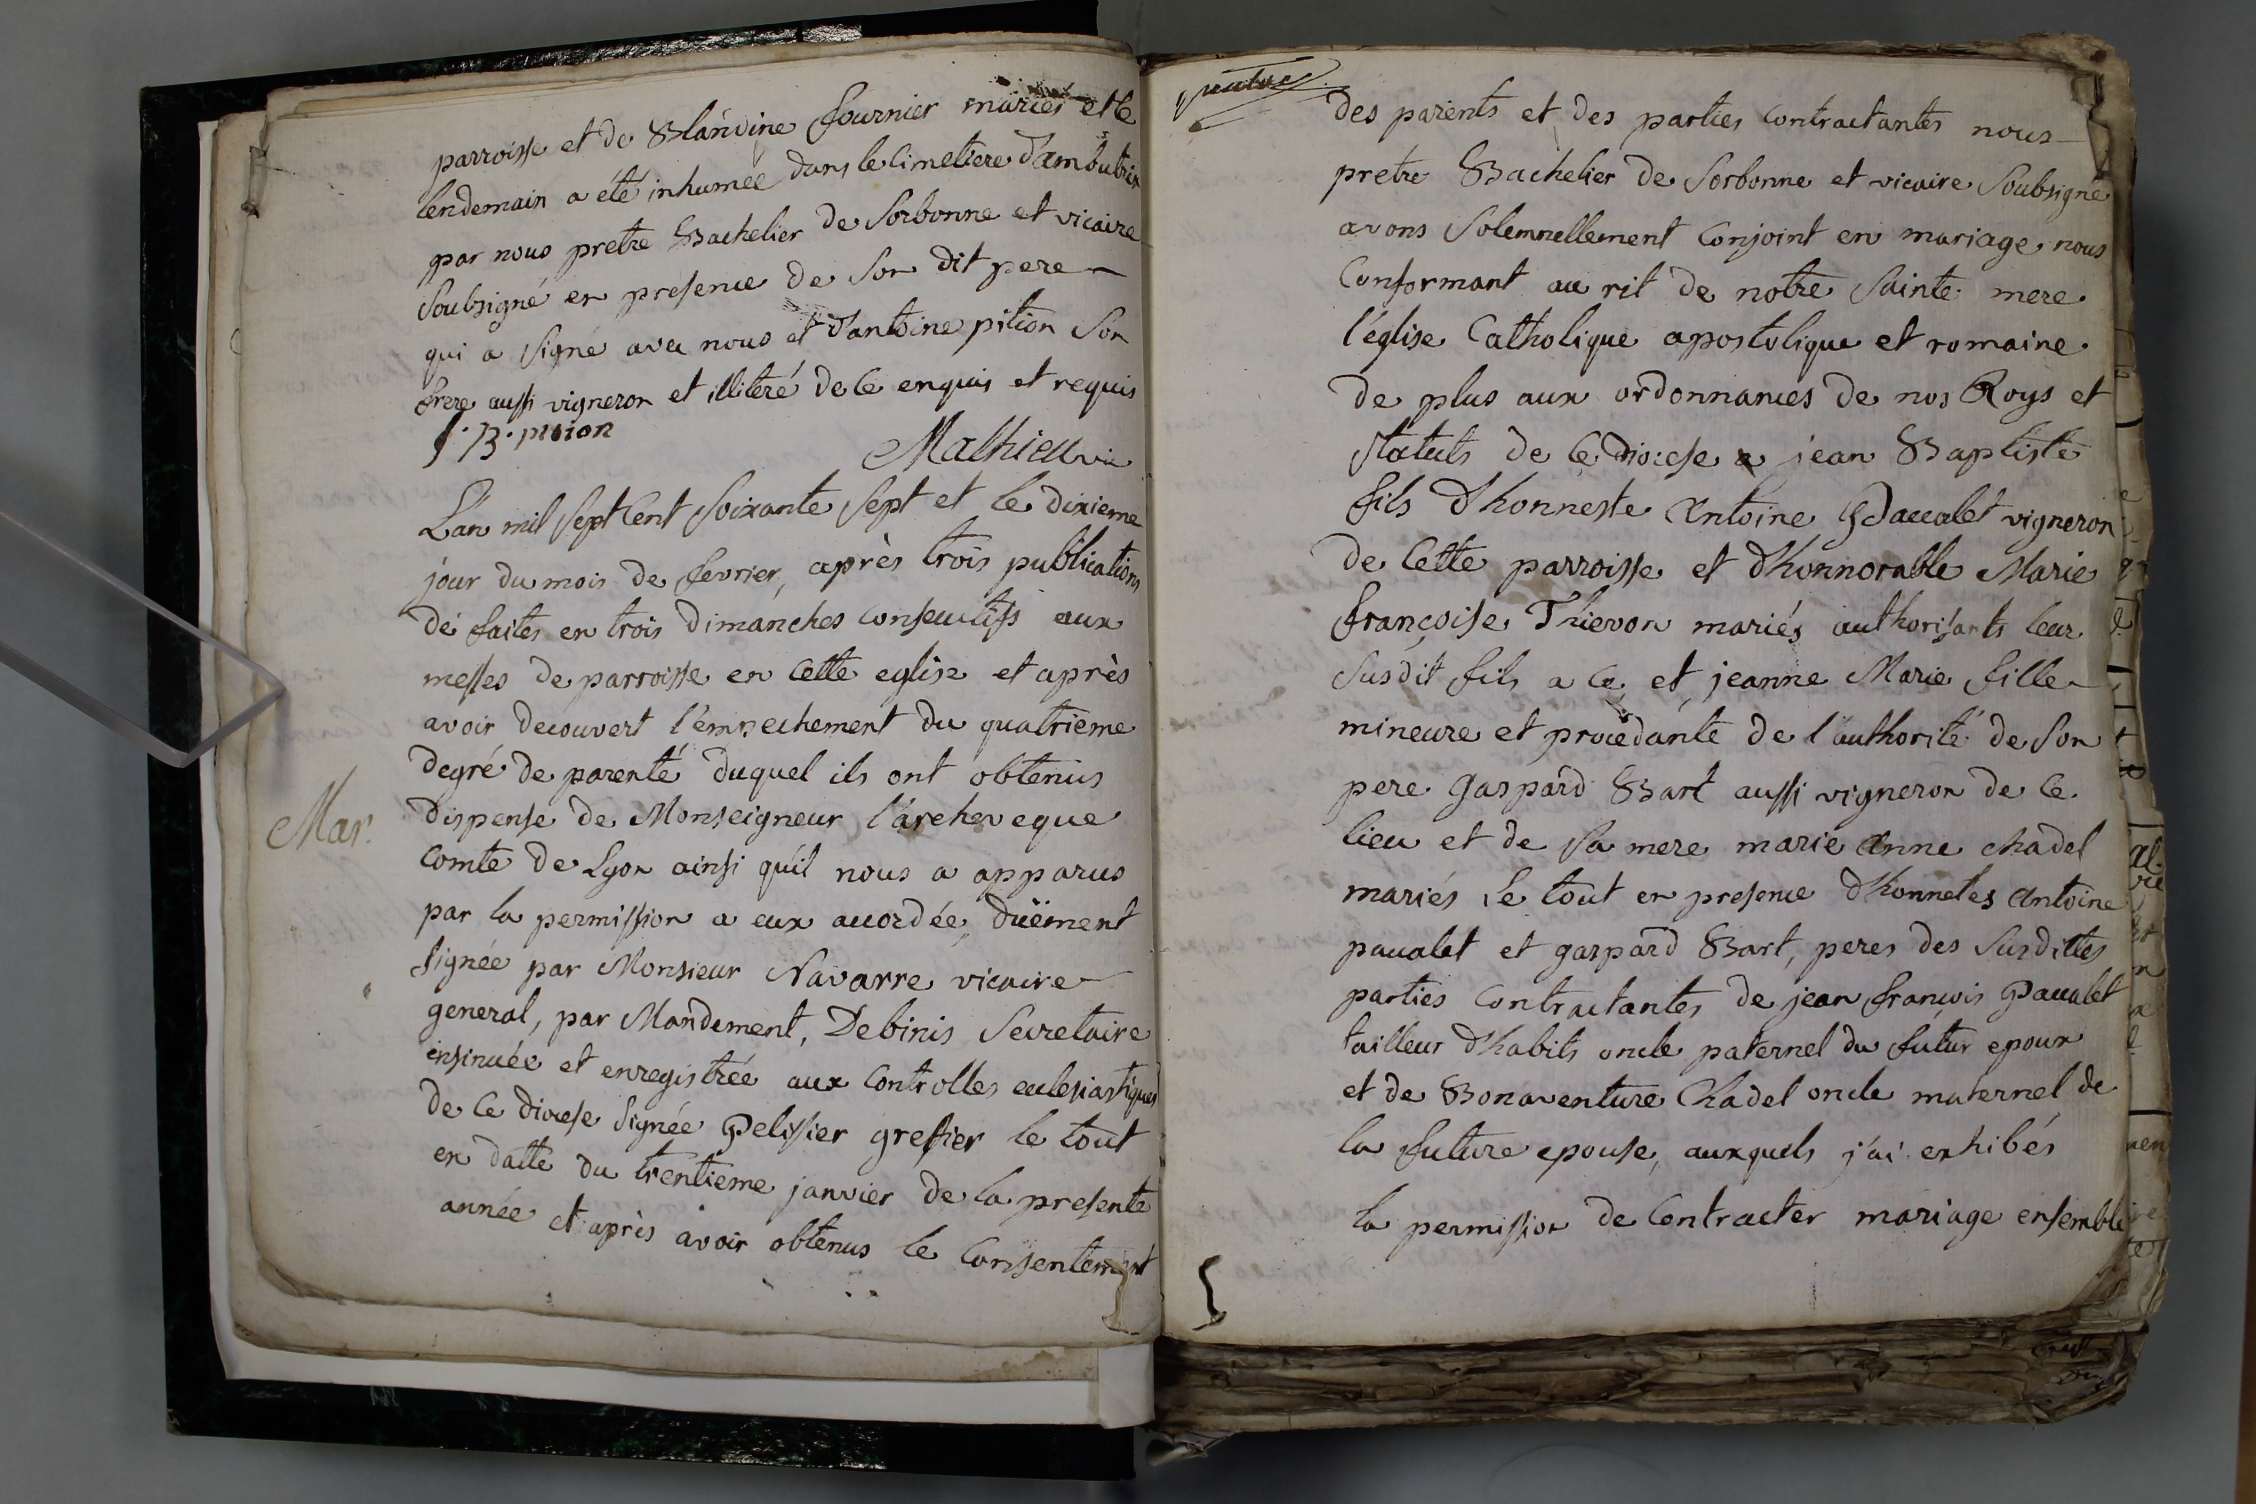 parroisse et de Blandine fournier mariés et le
lendemain a été inhumée dans le Cimetiere d'ambutrix
par nous pretre Bachelier de Sorbonne et vicaire
Soubsigné en presence de Son dit pere
qui a signé avec nous et d'antoine pition Son
frere aussi vigneron et illiteré de ce enquis et requis
J. B. pition
Mathieu vic
L'an mil sept Cent Soixante sept et le dixieme
jour du mois de fevrier, après trois publications
de faites en trois Dimanches consecutifs aux
messes de parroisse en Cette eglise et après
avoir decouvert l'empechement du quatrieme
degré de parenté duquel ils ont obtenus
Mar.
dispense de Monseigneur l'archeveque
Comte de Lyon ainsi qu'il nous a apparus
par la permission a eux accordée, duëment
signée par Monsieur Navarre vicaire
general, par Mandement, Debinis Secretaire
insinuée et enregistrée aux Controlles ecclesiastiques
de Ce diocese signée Pelissier grefier le tout
en datte du trentieme janvier de la presente
année et après avoir obtenus le Consentement
quatre
des parents et des parties Contractantes nous
pretre Bachelier de Sorbonne et vicaire Soubsigné
avons Solemnellement Conjoint en mariage, nous
Conformant au rit de notre Sainte mere
l'église Catholique apostolique et romaine
de plus aux ordonnances de nos Roys et
statuts de Ce diocese a jean Baptiste
fils d'honneste Antoine Paccalet vigneron
de Cette parroisse et d'honnorable Marie
françoise Thievon mariés authorisants leur
susdit fils a Ce, et jeanne Marie fille
mineure et procedante de l'authorité de Son
pere gaspard Bart aussi vigneron de Ce
lieu et de Sa mere marie Anne chadel
mariés Le tout en presence d'honnetes Antoine
paccalet et gaspard Bart, peres des Susdittes
parties Contractantes de jean françois Paccalet
tailleur d'habits oncle paternel du futur epoux
et de Bonaventure Chadel oncle maternel de
la future epouse, auxquels j'ai exhibés
la permission de Contracter mariage ensemble